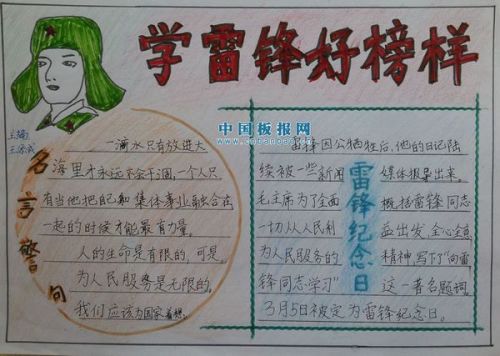 学雷锋好榜样
主编
中国板报网
名言警句
一滴水只有放进大
海里才永远不会干涸,一个人只
有当他把自己和集体事业融合在
一起的时候才能最有力量。
人的生命是有限的,可是,
为人民服务是无限的。
我们应该为国家着想。
雷锋纪念日
雷锋因公牺牲后,他的日记陆
续被一些新闻媒体报集出来,
毛主席为了全面概括雷锋同志
一切从人民利益出发,全心全意
为人民服务的精神,写下了“向雷
锋同志学习”这一著名题词。
3月5日被定为雷锋纪念日。